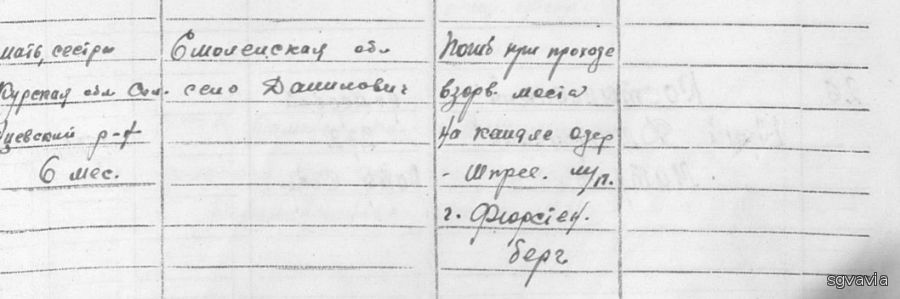 мать, сестры
Курская обл Сол.
цевский р-н
6 мес.
Смоленская обл
село Данилович
Погиб при проходе
взорв. моста
на канале одер
- Шпрее. м/п.
г. Фюрстен.
берг
sgvavia